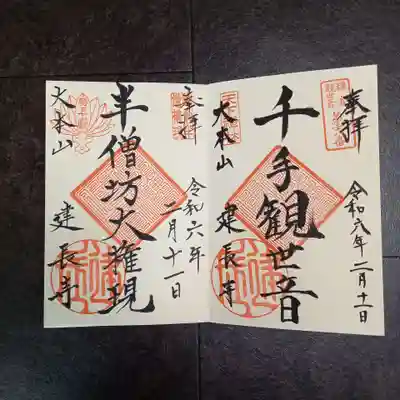 奉拝
千手観世音
令和六年二月十一日
大本山
建長寺
奉拝
半僧坊大権現
令和六年
二月十一日
大本山
建長寺